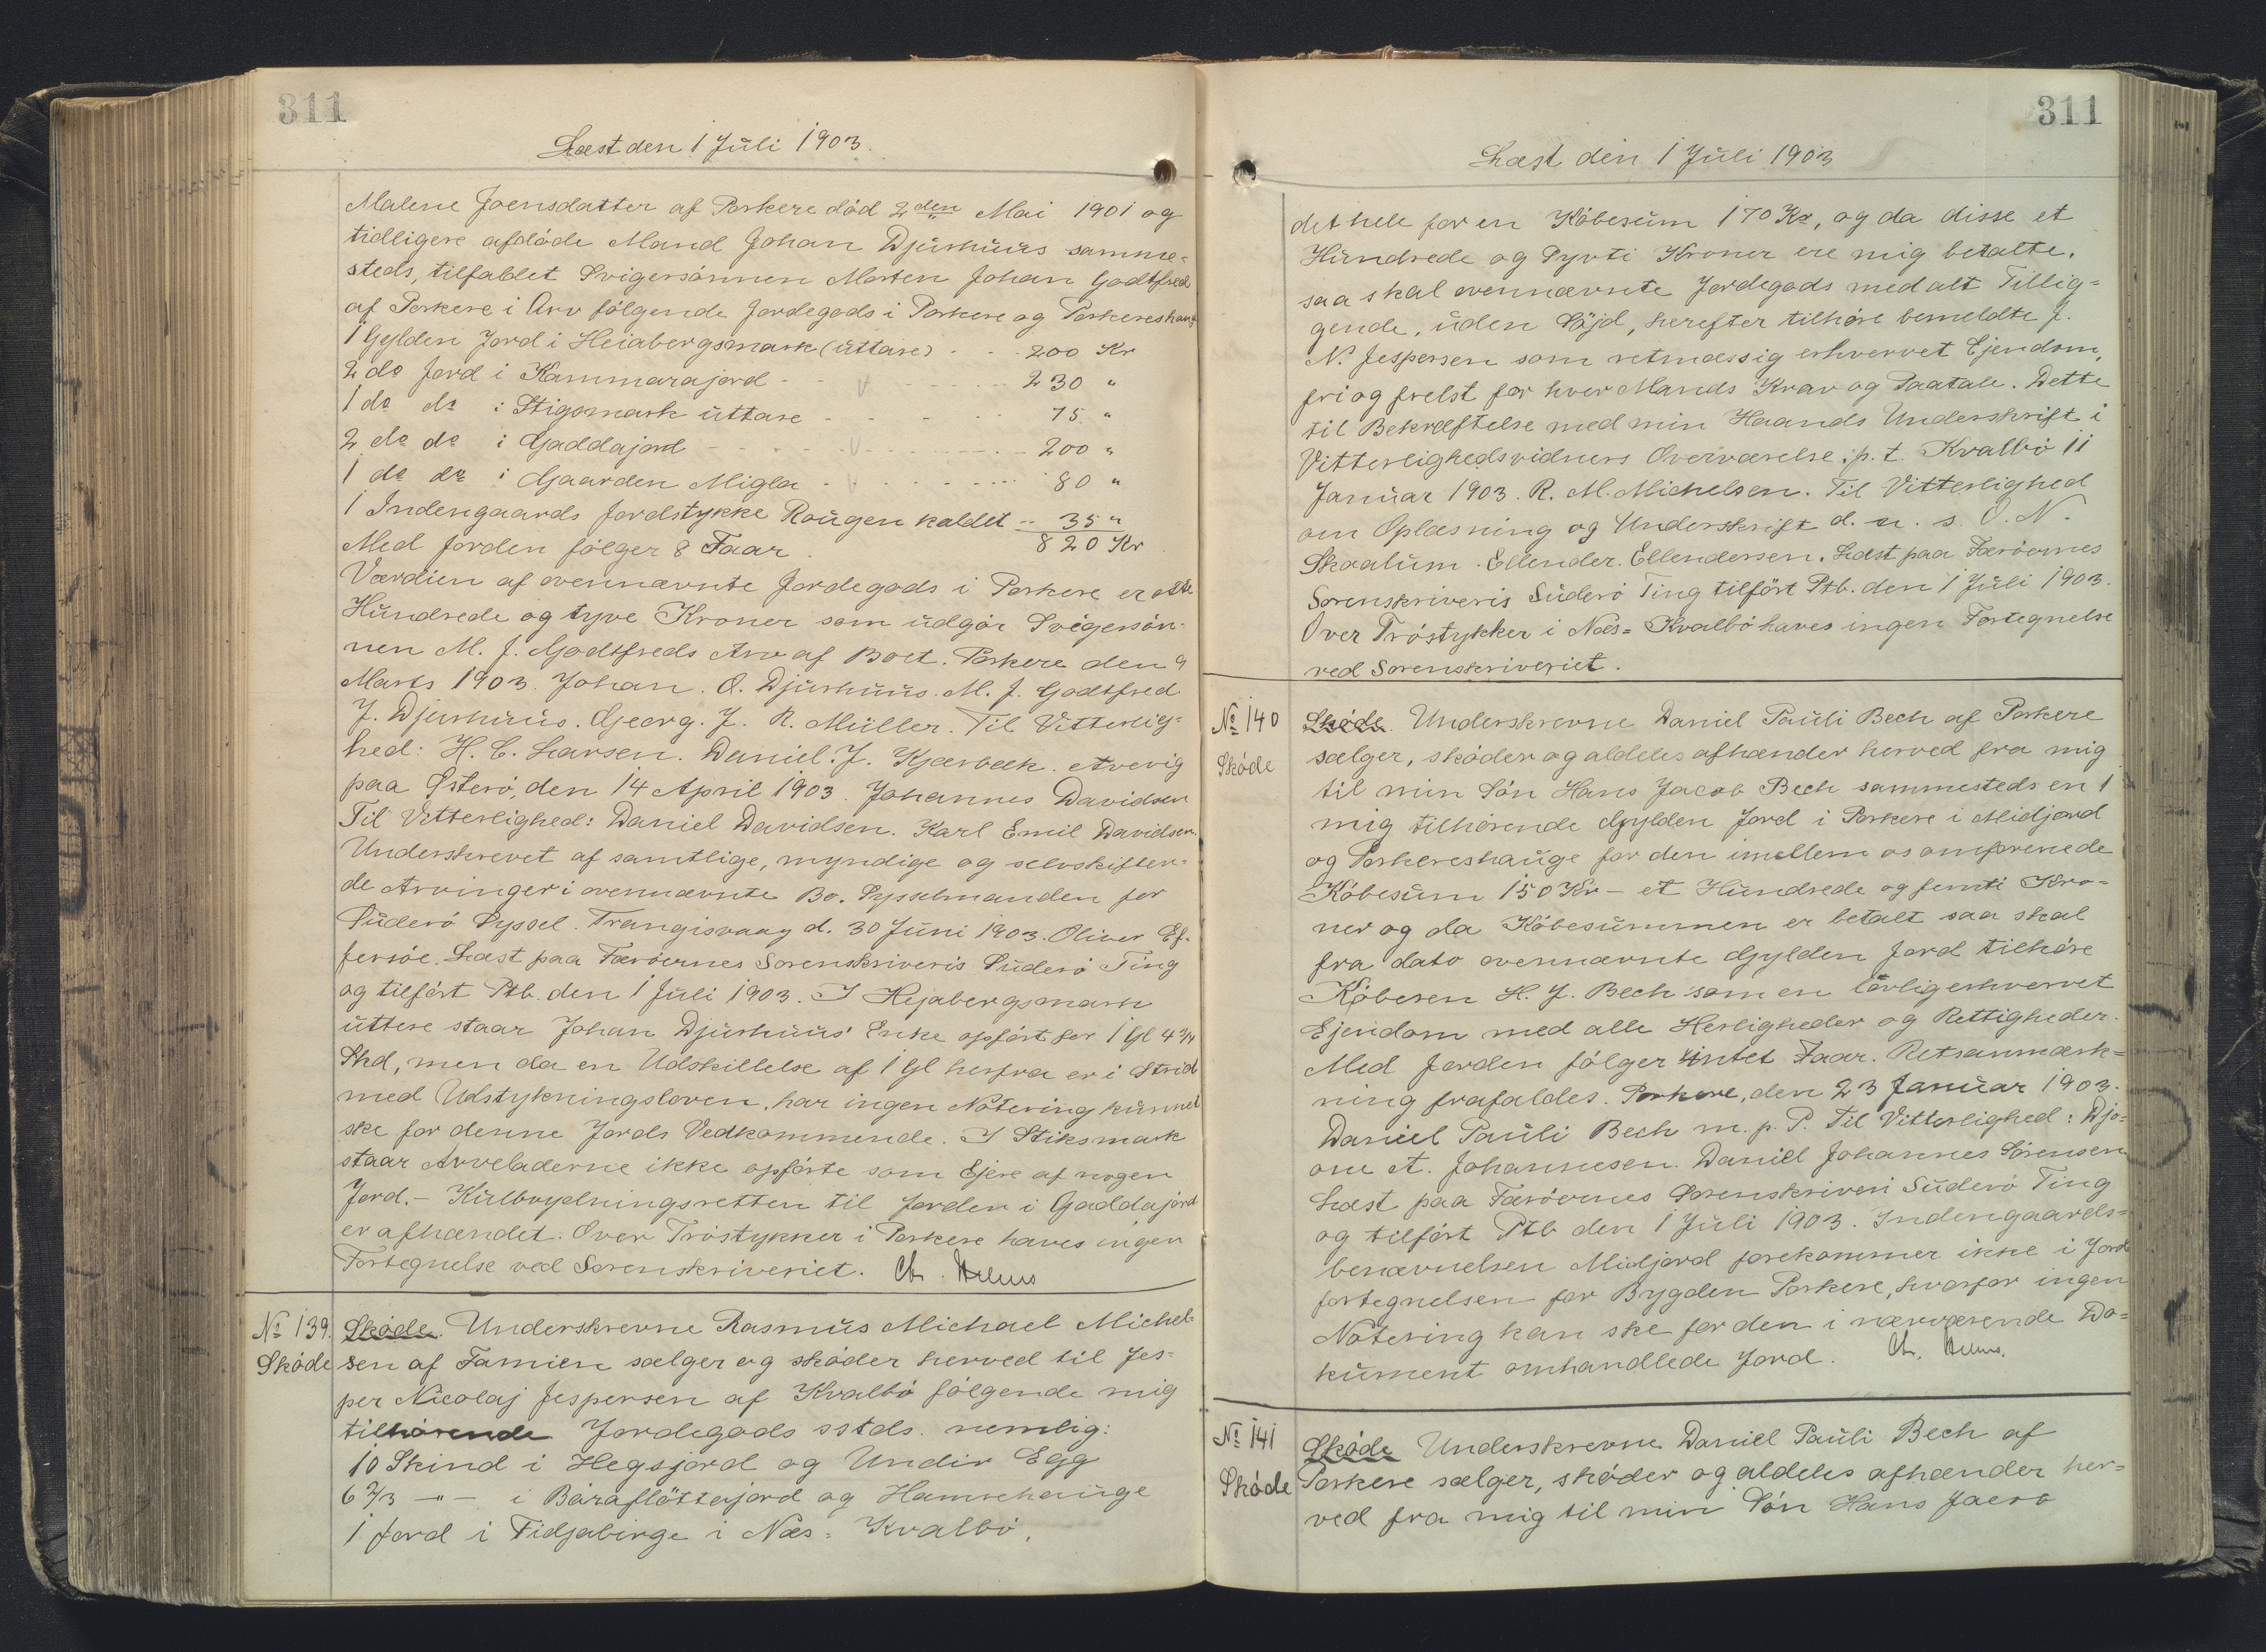 311
Læst den 1 Juli 1903.
Malene Joensdatter af Porkere död 2den Mai 1901 og
tidligere afdöde Mand Johan Djurhuus samme-
steds, tilfaldet Svigersönnen Morten Johan Godtfred
af Porkere i Arv fölgende Jordegods i Porkere og Porkereshaug
1 Gylden Jord i Heiabergsmark (uttare) - - - 200 Kr
2 do Jord i Kammarajord - - - 230 "
1 do do i Stigsmark uttare - - - 75 "
2 do do i Gaddajord - - - 200 "
1 do do i Gaarden Migla - - - 80 "
1 Indengaards Jordstykke Rougen kaldet -- 35 "
Med Jorden fölger 8 Faar. 820 Kr
Værdien af ovennævnte Jordegods i Porkere er otte
Hundrede og tyve Kroner som udgör Svigersön-
nen M. J. Godtfreds Arv af Boet. Porkere den 9
Marts 1903. Johan. O. Djurhuus. M. J. Godtfred
J. Djurhuus. Georg. J. R. Müller. Til Vitterlig-
hed: H. C. Larsen. Daniel. J. Kjærbeck. Arevig
paa Österö, den 14 April 1903. Johannes Davidsen
Til Vitterlighed: Daniel Davidsen. Karl Emil Davidsen.
Underskrevet af samtlige, myndige og selvskiften-
de Arvinger i ovennævnte Bo. Sysselmanden for
Suderö Syssel. Trangisvaag d. 30 Juni 1903. Oliver Ef-
fersöe. Læst paa Færöernes Sorenskriveris Suderö Ting
og tilfört Ptb. den 1 Juli 1903. I Hejabergsmark
uttere staar Johan Djurhuus' Enke opfört for 1 Gl 4 3/4
Skd, men da en Udskillelse af 1 Gl herfra er i Strid
med Udstykningsloven, har ingen Notering kunnet
ske for denne Jords Vedkommende. I Stiksmark
staar Arveladerne ikke opförte som Ejere af nogen
Jord. - Kulbrydningsretten til Jorden i Gaddajord
er afhændet. Over Tröstykker i Porkere haves ingen
Fortegnelse ved Sorenskriveriet.
No 139. Sköde. Underskrevne Rasmus Michael Michel-
Sköde sen af Famien sælger og sköder herved til Jes-
per Nicolaj Jespersen af Kvalbö fölgende mig
tilhörende Jordegods sstds. nemlig:
10 Skind i Hegsjord og Undir Egg
6 2/3 -"- i Báraflöttajord og Hamrehauge
1 Jord i Fidjabirge i Næs = Kvalbö,
311
Læst den 1 Juli 1903
det hele for en Köbesum 170 Kr, og da disse et
Hundrede og Syvti Kroner ere mig betalte.
saa skal ovennævnte Jordegods med alt Tillig-
gende, uden Söjd, herefter tilhöre bemeldte J.
N. Jespersen som retmæssig erhvervet Ejendom,
fri og frelst for hver Mands Krav og Paatale. Dette
til Bekræftelse med min Haands Underskrift i
Vitterlighedsvidners Overværelse. p. t. Kvalbö 11
Januar 1903. R. M. Michelsen. Til Vitterlighed
om Oplæsning og Underskrift d. u. s. O. N.
Skaalum. Ellender. Ellendersen. Læst paa Færöernes
Sorenskriveris Suderö Ting tilfört Ptb. den 1 Juli 1903.
Over Tröstykker i Næs = Kvalbö haves ingen Fortegnelse
ved Sorenskriveriet.
No 140 Sköde. Underskrevne Daniel Pauli Bech af Porkere
Sköde sælger, sköder og aldeles afhænder herved fra mig
til min Sön Hans Jacob Bech sammesteds en 1
mig tilhörende Gylden Jord i Porkere i Midjord
og Porkereshauge for den imellem os omforenede
Köbesum 150 Kr - et Hundrede og femti Kro-
ner og da Köbesummen er betalt saa skal
fra dato ovennævnte Gylden Jord tilhöre
Köberen H. J. Bech som en lovlig erhvervet
Ejendom med alle Herligheder og Rettigheder.
Med Jorden fölger intet Faar. Retsanmærk-
ning frafaldes. Porkere, den 23 Januar 1903.
Daniel Pauli Bech m. p. P. Til Vitterlighed: Djo-
one A. Johannesen. Daniel Johannes Sörensen
Læst paa Færöernes Sorenskriveri Suderö Ting
og tilfört Ptb den 1 Juli 1903. Indengaards-
benævnelsen Midjord forekommer ikke i Jord
fortegnelsen for Bygden Porkere, hvorfor ingen
Notering kan ske for den i nærværende Do-
kument omhandlede Jord.
No 141 Sköde Underskrevne Daniel Pauli Bech af
Sköde Porkere sælger, sköder og aldeles afhænder her-
ved fra mig til min Sön Hans Jacob